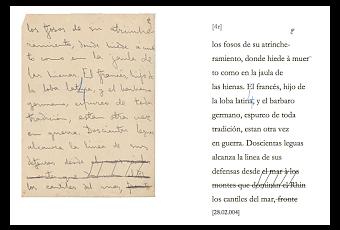 los fosos de su atrinche-
ramiento, donde hiede a mue
to como en la jaula de
las hienas. El francés, hijo de
la loba latina, y el barbaro
germano, espureo de toda
tradición, estan otra vez
en guerra. Doscientas leguas
alcanza la linea de sus
defensas desde el mar
los cantiles del mar,
[4r]
los fosos de su atrinche-
ramiento, donde hiede á muer
to como en la jaula de
las hienas. El francés, hijo de
la loba latina, y el barbaro
germano, espureo de toda
tradición, estan otra vez
en guerra. Doscientas leguas
alcanza la linea de sus
defensas desde el mar á los
montes que dominan el Rhin
los cantiles del mar, frente
[28.02.004]